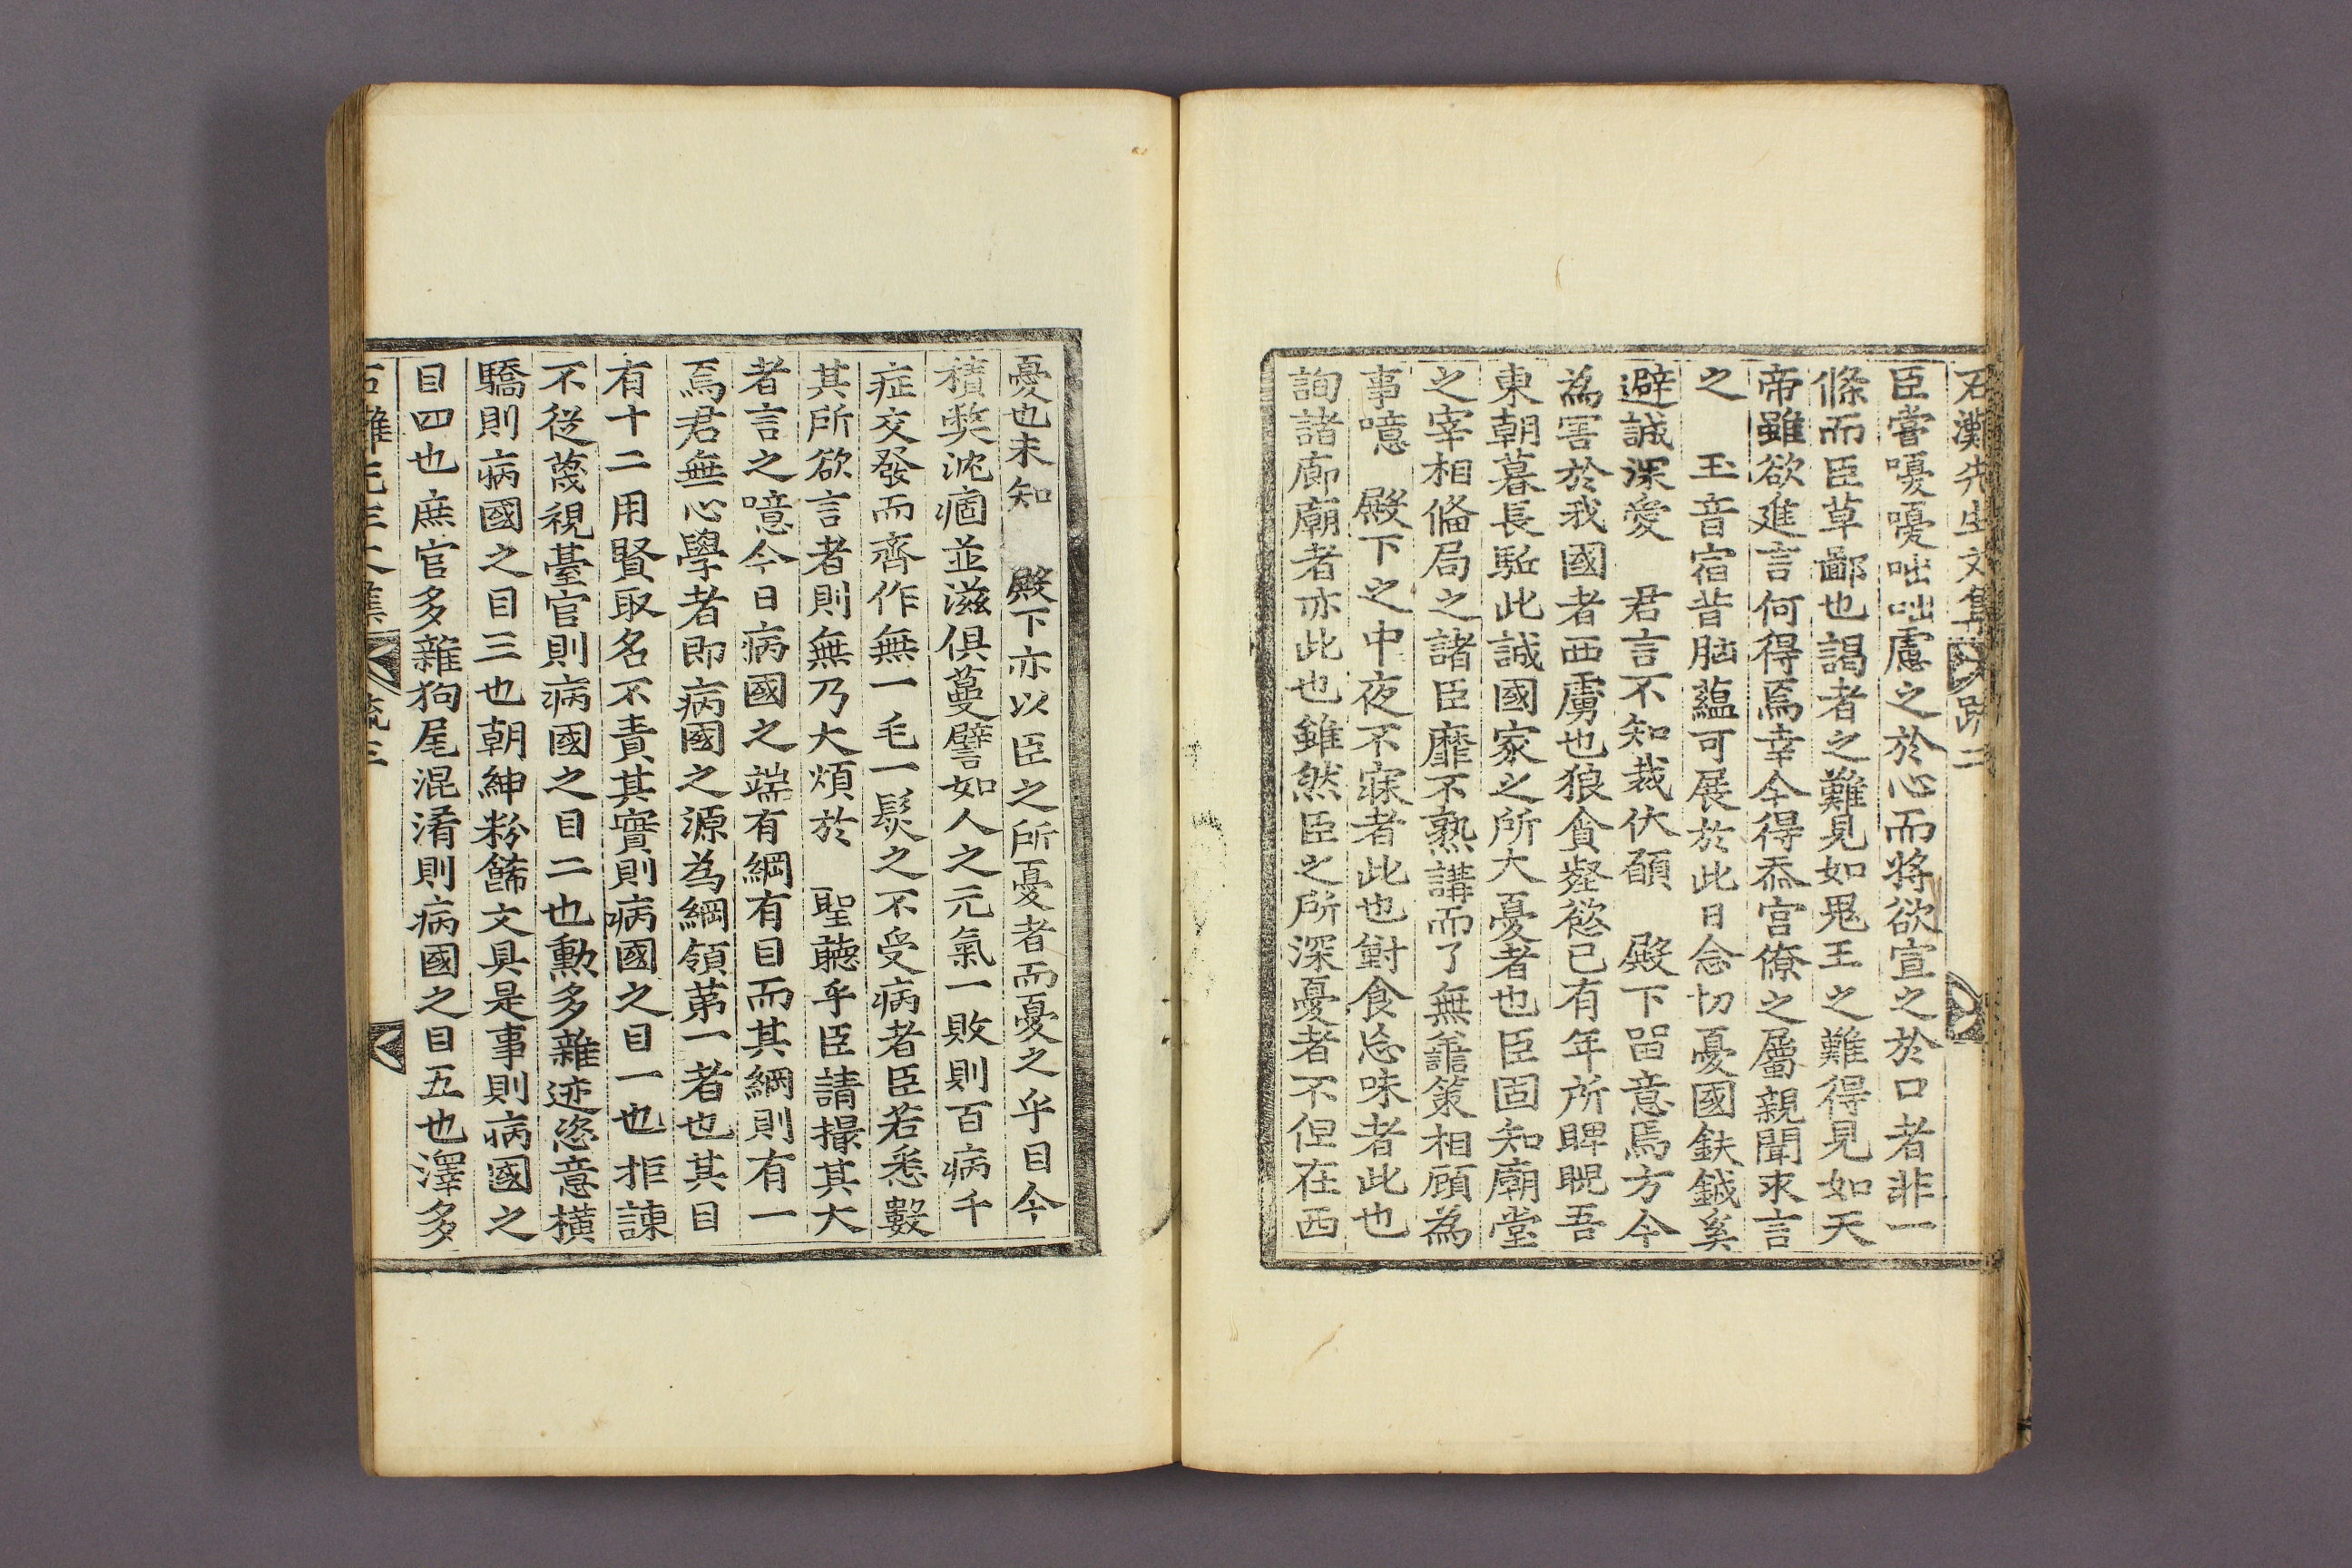 石灘先生文集 疏二
臣嘗嚘嚘咄咄慮之於心而將欲宣之於口者非一
條而臣草鄙也謁者之難見如鬼王之難得見如天
帝雖欲進言何得焉幸今得忝宮僚之屬親聞求言
之 玉音宿昔腦蘊可展於此日念切憂國鈇鉞奚
避誠深愛 君言不知裁伏願 殿下留意焉方今
為害於我國者西虜也狼貪壑慾已有年所睥睨吾
東朝暮長駈此誠國家之所大憂者也臣固知廟堂
之宰相俻局之諸臣靡不熟講而了無籌策相顧為
事噫 殿下之中夜不寐者此也對食忘味者此也
詢諸廊廟者亦此也雖然臣之所深憂者不但在西
憂也未知 殿下亦以臣之所憂者而憂之乎目今
積獘沈痼並滋俱蔓譬如人之元氣一敗則百病千
症交發而齊作無一毛一髮之不受病者臣若悉數
其所欲言者則無乃大煩於 聖聽乎臣請撮其大
者言之噫今日病國之端有綱有目而其綱則有一
焉君無心學者即病國之源為綱領第一者也其目
有十二用賢取名不責其實則病國之目一也拒諫
不從蔑視臺官則病國之目二也勳多雜迹恣意橫
驕則病國之目三也朝紳粉餙文具是事則病國之
目四也庶官多雜狗尾混淆則病國之目五也澤多
疏三